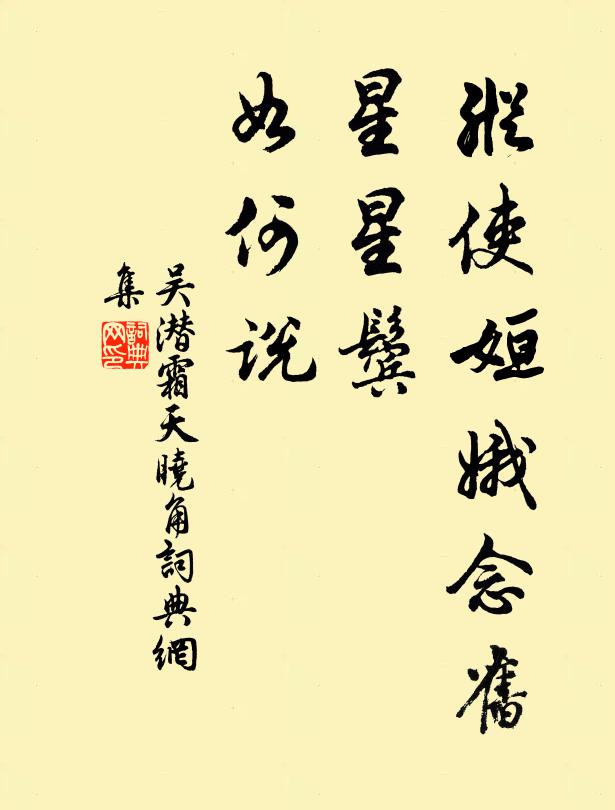 縱使姮娥念舊
星星鬢
如何說
吴潛霜天曉角詞典網
集
詞典網印